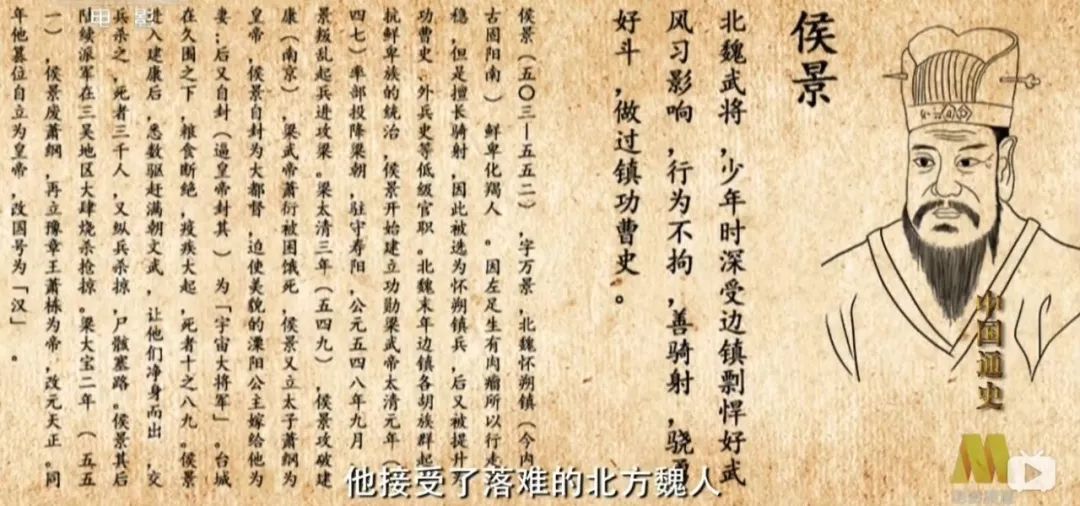 侯景
北魏武将，少年时深受边镇剽悍好武
风习影响，行为不拘，善骑射，骁勇
好斗，做过镇功曹史。
侯景（五〇三—五五二），字万景，北魏怀朔镇（今内
古固阳南）鲜卑化羯人。因左足生有肉瘤所以行走
稳，但是擅长骑射，因此被选为怀朔镇兵，后又被提升为
功曹史、外兵史等低级官职。北魏末年边镇各胡族群起
抗鲜卑族的统治，侯景开始建立功勋梁武帝太清元年（
四七）率部投降梁朝，驻守寿阳，公元五四八年九月
景叛乱起兵进攻梁。梁太清三年（五四九），侯景攻破建
康（南京），梁武帝萧衍被困饿死，侯景又立太子萧纲为
皇帝，侯景自封为大都督，迫使美貌的溧阳公主嫁给他为
妻；后又自封（逼皇帝封其）为「宇宙大将军」。台城
在久围之下，粮食断绝，疫疾大起，死者十之八九。侯景
进入建康后，悉数驱赶满朝文武，让他们净身而出，交
兵杀之，死者三千人，又纵兵杀掠，尸骸塞路。侯景其后
陆续派军在三吴地区大肆烧杀抢掠。梁大宝二年（五五
一），侯景废萧纲，再立豫章王萧栋为帝，改元天正。同
年他篡位自立为皇帝，改国号为「汉」。
中国通史
他接受了落难的北方魏人
电影